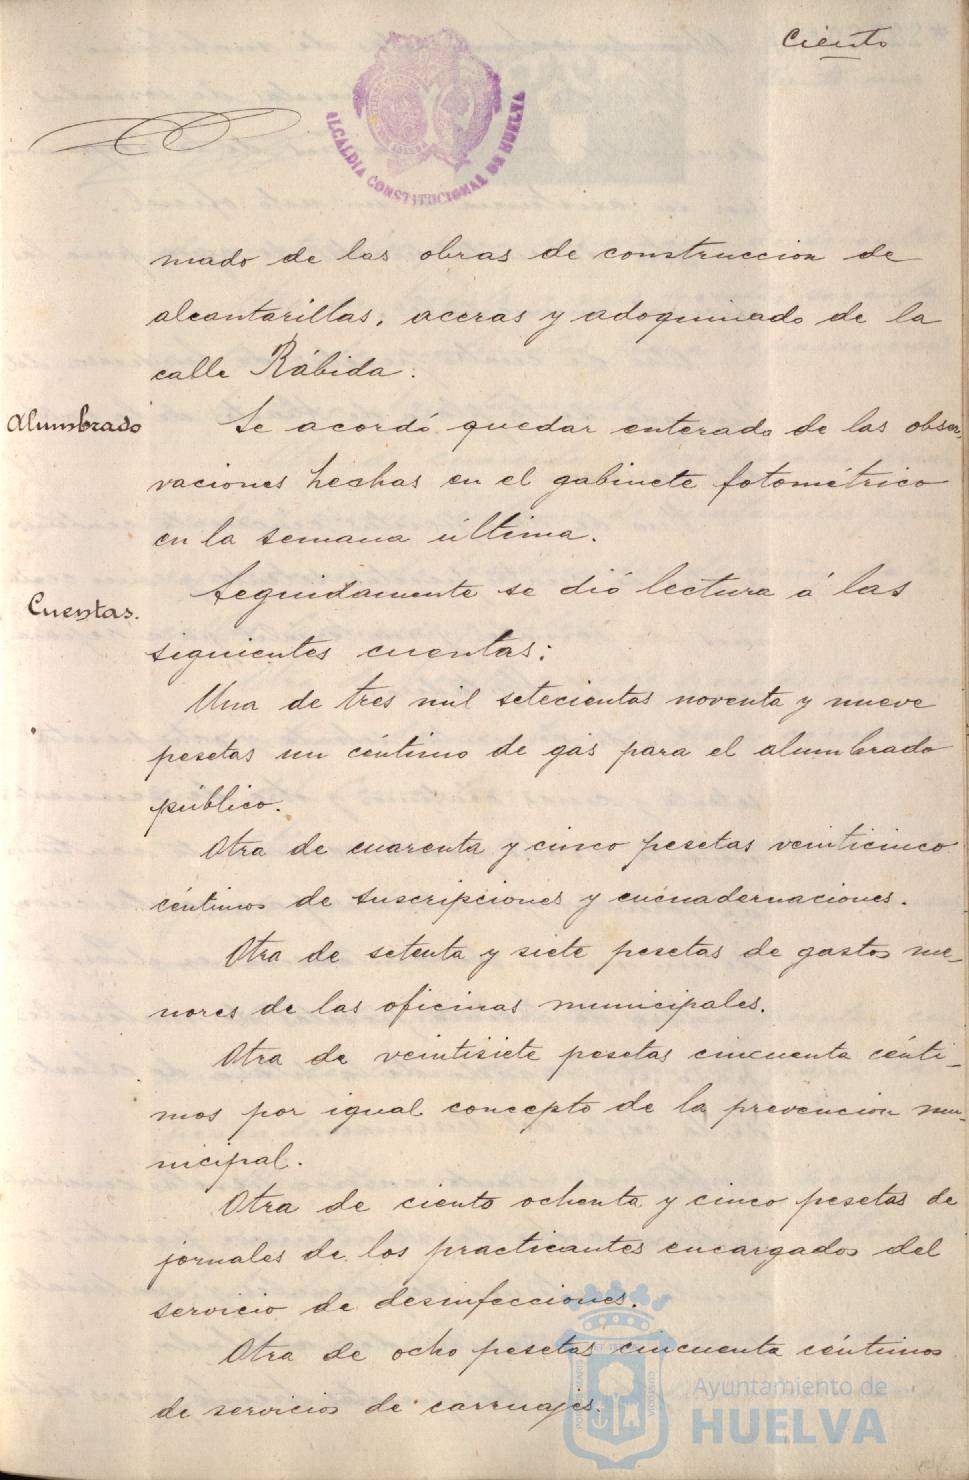 Ciento
ALCALDIA CONSTITUCIONAL DE HUELVA
mado de las obras de construccion de
alcantarillas, aceras y adoquinado de la
calle Rábida.
Alumbrado
Se acordó quedar enterado de las obser-
vaciones hechas en el gabinete fotométrico
en la semana última.
Cuentas.
Seguidamente se dió lectura á las
siguientes cuentas:
Una de tres mil setecientas noventa y nueve
pesetas un céntimo de gas para el alumbrado
público.
Otra de cuarenta y cinco pesetas veinticinco
céntimos de suscripciones y encuadernaciones.
Otra de setenta y siete pesetas de gastos me-
nores de las oficinas municipales.
Otra de veintisiete pesetas cincuenta cénti-
mos por igual concepto de la prevencion mu-
nicipal.
Otra de ciento ochenta y cinco pesetas de
jornales de los practicantes encargados del
servicio de desinfecciones.
Otra de ocho pesetas cincuenta céntimos
de servicios de carruajes.
Ayuntamiento de
HUELVA